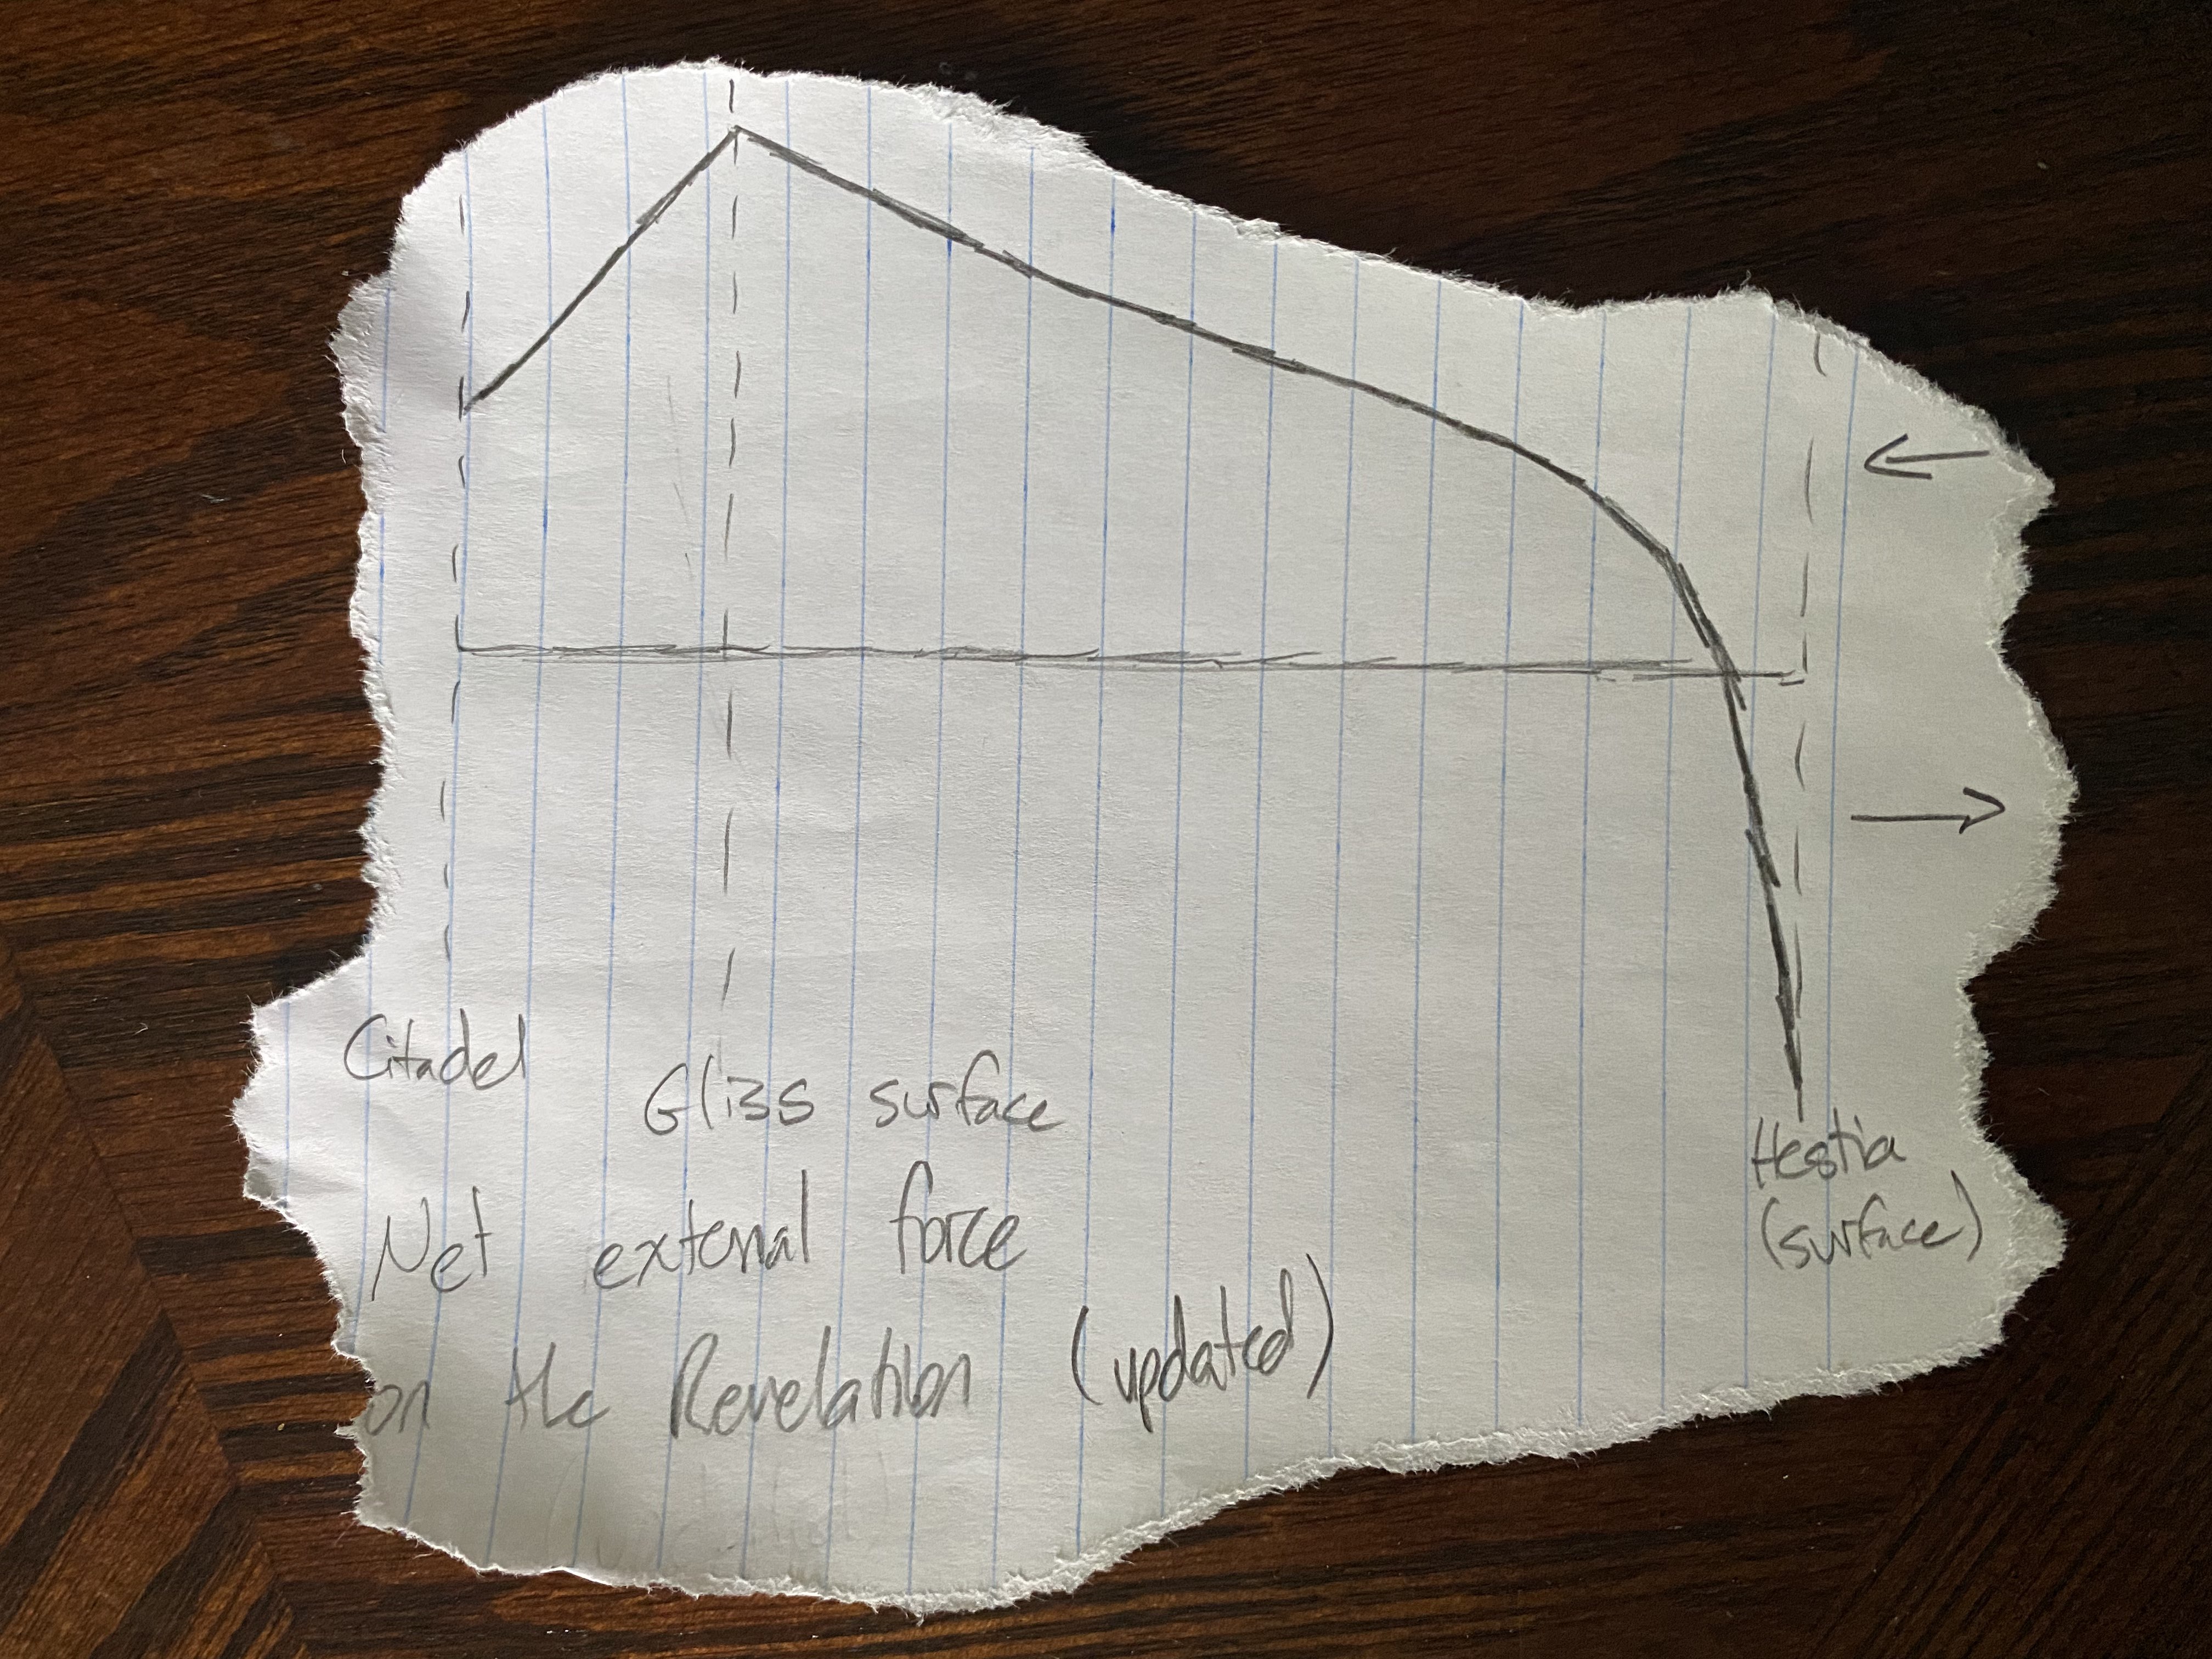 Citadel
Gliss surface
Hestia
(surface)
Net external force
on the Revelation (updated)